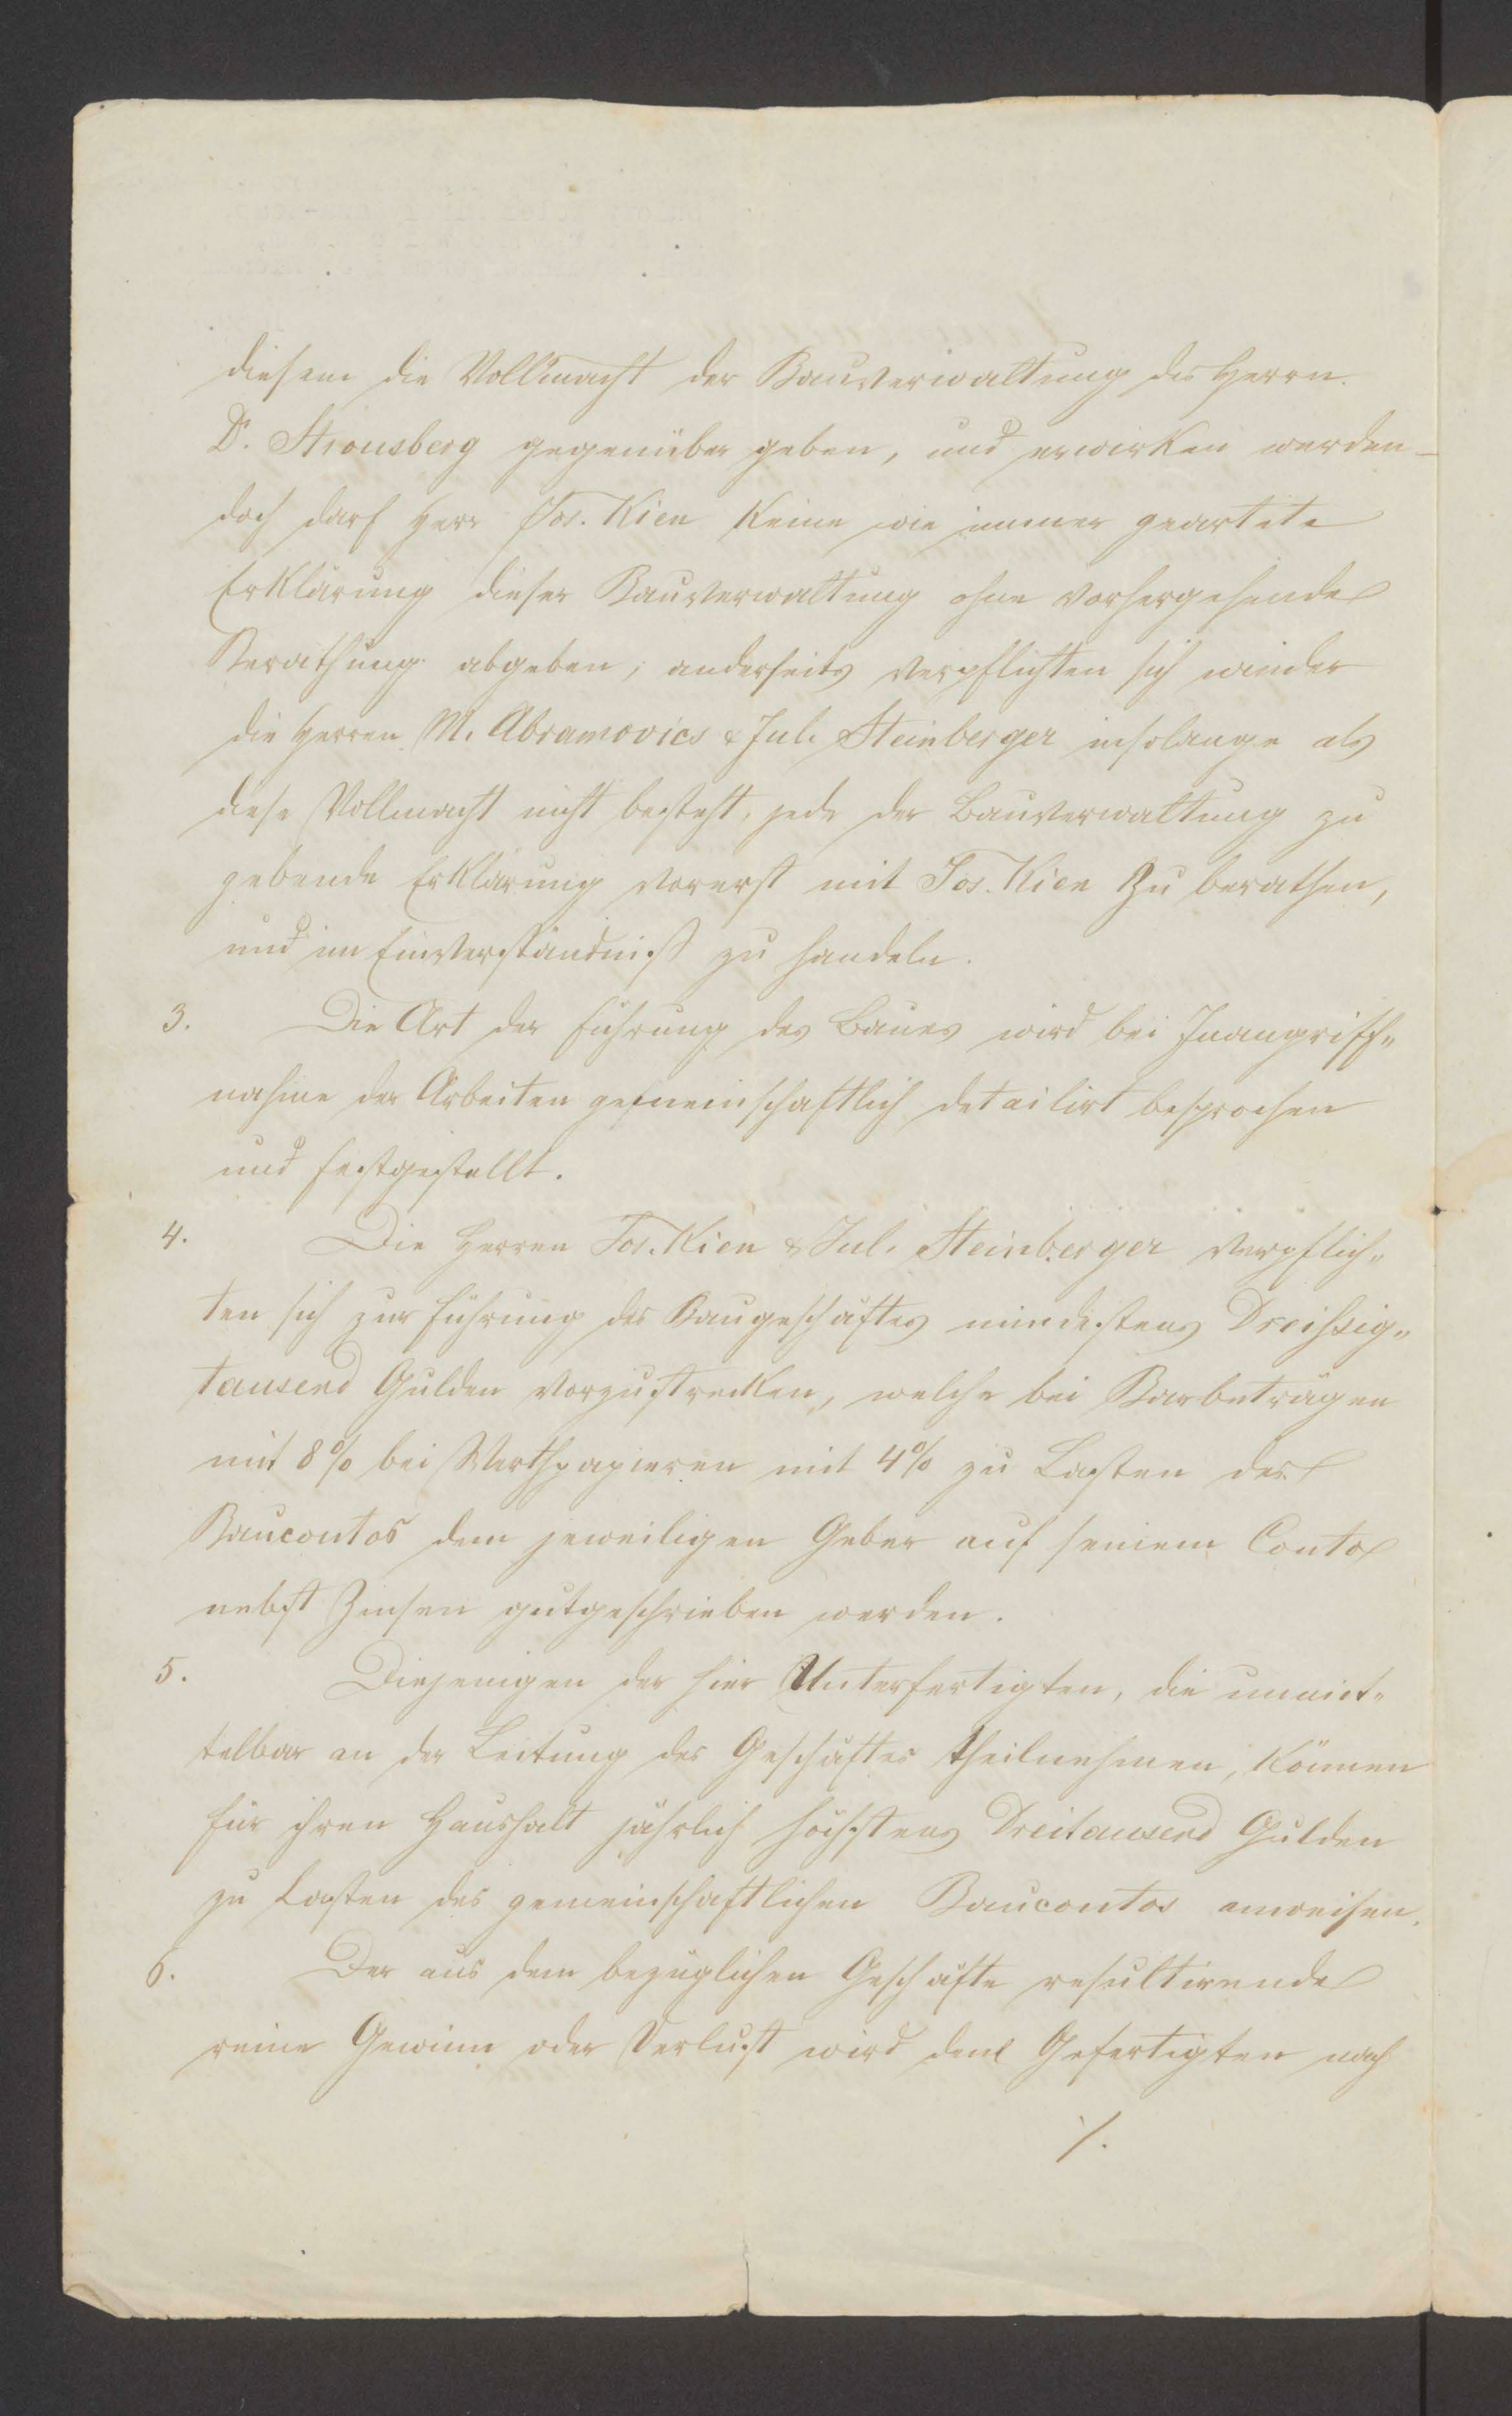 diesem die Vollmacht der Bauverwaltung des Herrn
Dr. Strousberg gegenüber geben, und erwirken werden –
doch darf Herr Jos. Kien keine wie immer geartete
Erklärung dieser Bauverwaltung ohne vorhergehende
Berathung abgeben; anderseits verpflichten sich wieder
die Herren M. Abramovics & Jul. Steinberger insolange als
diese Vollmacht nicht besteht, jede der Bauverwaltung zu
gebende Erklärung vorerst mit Jos. Kien zu berathen,
und im Einverständniß zu handeln.
3. Die Art der Führung des Baues wird bei Inangriff„
nahme der Arbeiten gemeinschaftlich detailirt besprochen
und festgestellt.
4. Die Herren Jos. Kien & Jul. Steinberger verpflich„
ten sich zur Führung des Baugeschäftes mindestens Dreißsig„
tausend Gulden vorzustrecken, welche bei Barbeträgen
mit 8% bei Werthpapieren mit 4% zu Lasten des
Baucontos dem jeweiligen Geber auf seinem Conto
nebst Zinsen gutgeschrieben werden.
5. Diejenigen der hier Unterfertigten, die unmit„
telbar an der Leitung des Geschäftes theilnehmen, können
für ihren Haushalt jährlich höchstens Dreitausend Gulden
zu Lasten des gemeinschaftlichen Baucontos anweisen.
6. Der aus dem bezüglichen Geschäfte resultirende
reine Gewinn oder Verlust wird den Gefertigten nach
./.